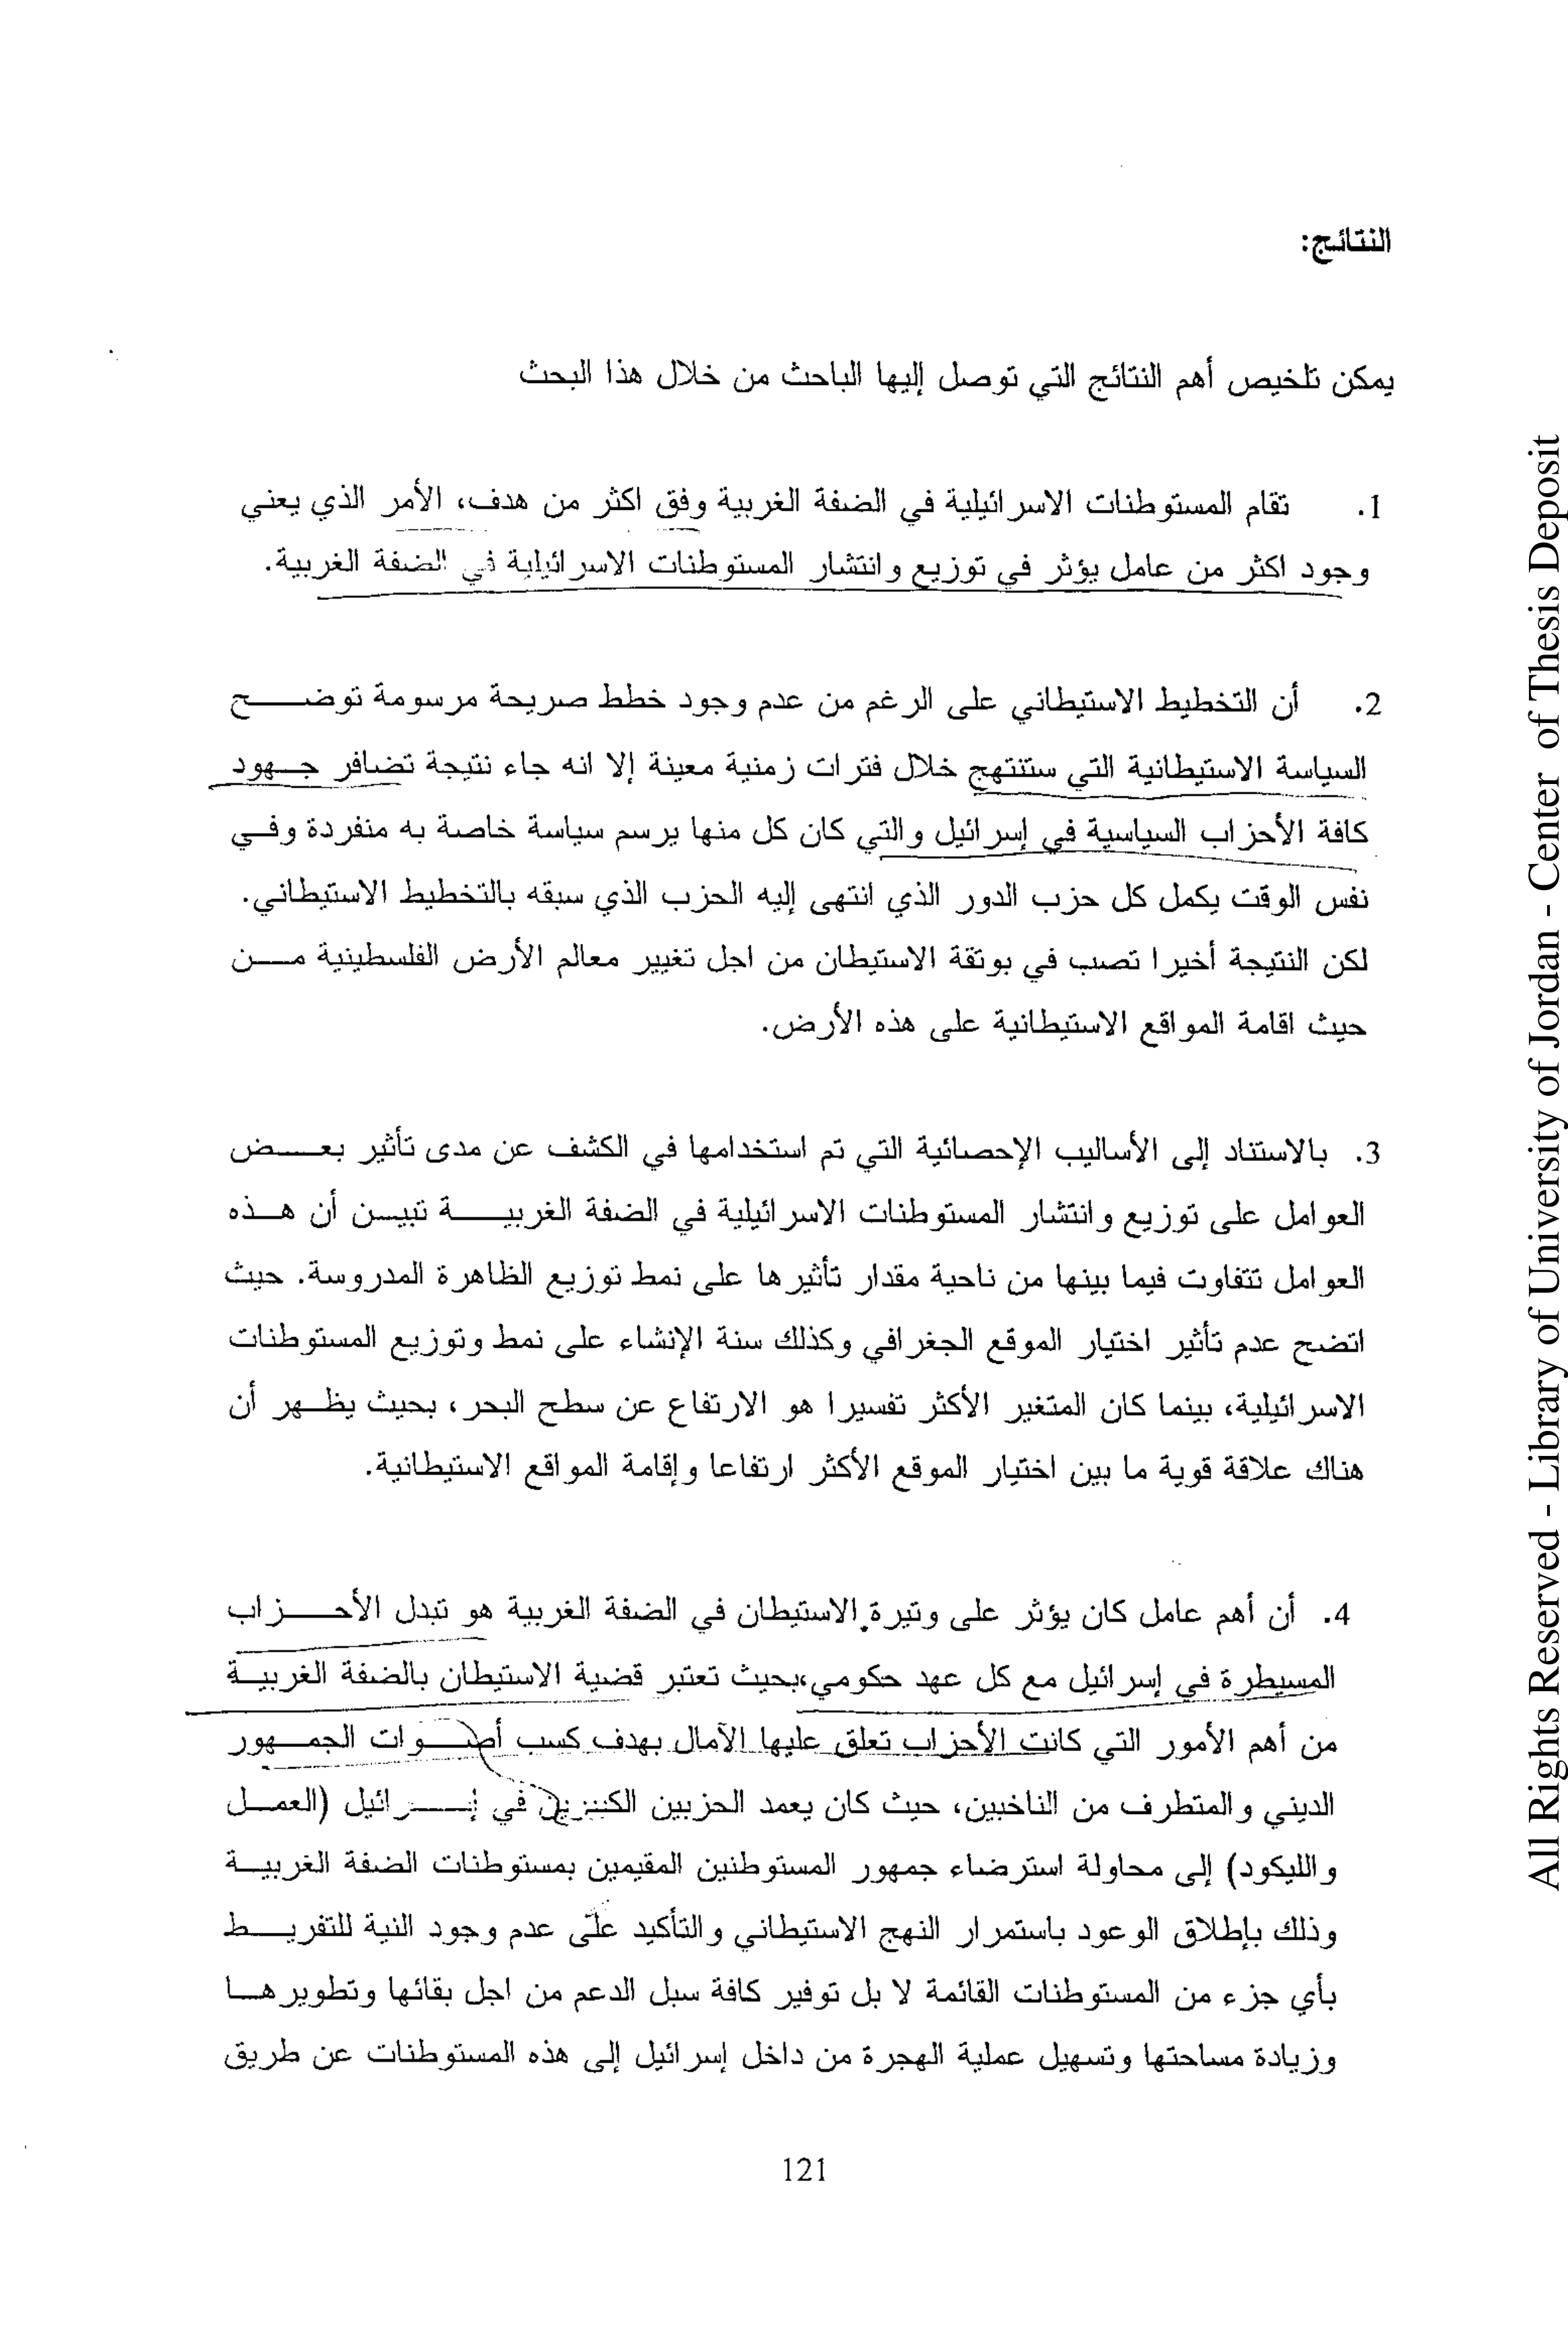 النتائج:
يمكن تلخيص أهم النتائج التي توصل إليها الباحث من خلال هذا البحث
1. تقام المستوطنات الاسرائيلية في الضفة الغربية وفق اكثر من هدف، الأمر الذي يعني
وجود اكثر من عامل يؤثر في توزيع وانتشار المستوطنات الاسرائيلية في الضفة الغربية.
2. أن التخطيط الاستيطاني على الرغم من عدم وجود خطط صريحة مرسومة توضح
السياسة الاستيطانية التي ستنتهج خلال فترات زمنية معينة إلا انه جاء نتيجة تضافر جهود
كافة الأحزاب السياسية في إسرائيل والتي كان كل منها يرسم سياسة خاصة به منفردة وفي
نفس الوقت يكمل كل حزب الدور الذي انتهى إليه الحزب الذي سبقه بالتخطيط الاستيطاني.
لكن النتيجة أخيرا تصب في بوتقة الاستيطان من اجل تغيير معالم الأرض الفلسطينية من
حيث اقامة المواقع الاستيطانية على هذه الأرض.
3. بالاستناد إلى الأساليب الإحصائية التي تم استخدامها في الكشف عن مدى تأثير بعض
العوامل على توزيع وانتشار المستوطنات الاسرائيلية في الضفة الغربية تبين أن هذه
العوامل تتفاوت فيما بينها من ناحية مقدار تأثيرها على نمط توزيع الظاهرة المدروسة. حيث
اتضح عدم تأثير اختيار الموقع الجغرافي وكذلك سنة الإنشاء على نمط وتوزيع المستوطنات
الاسرائيلية، بينما كان المتغير الأكثر تفسيرا هو الارتفاع عن سطح البحر، بحيث يظهر أن
هناك علاقة قوية ما بين اختيار الموقع الأكثر ارتفاعا وإقامة المواقع الاستيطانية.
4. أن أهم عامل كان يؤثر على وتيرة الاستيطان في الضفة الغربية هو تبدل الأحزاب
المسيطرة في إسرائيل مع كل عهد حكومي،بحيث تعتبر قضية الاستيطان بالضفة الغربية
من أهم الأمور التي كانت الأحزاب تعلق عليها الآمال بهدف كسب أصوات الجمهور
الديني والمتطرف من الناخبين، حيث كان يعمد الحزبين الكبيرين في إسرائيل (العمل
والليكود) إلى محاولة استرضاء جمهور المستوطنين المقيمين بمستوطنات الضفة الغربية
وذلك بإطلاق الوعود باستمرار النهج الاستيطاني والتأكيد على عدم وجود النية للتفريط
بأي جزء من المستوطنات القائمة لا بل توفير كافة سبل الدعم من اجل بقائها وتطويرها
وزيادة مساحتها وتسهيل عملية الهجرة من داخل إسرائيل إلى هذه المستوطنات عن طريق
121
All Rights Reserved - Library of University of Jordan - Center of Thesis Deposit